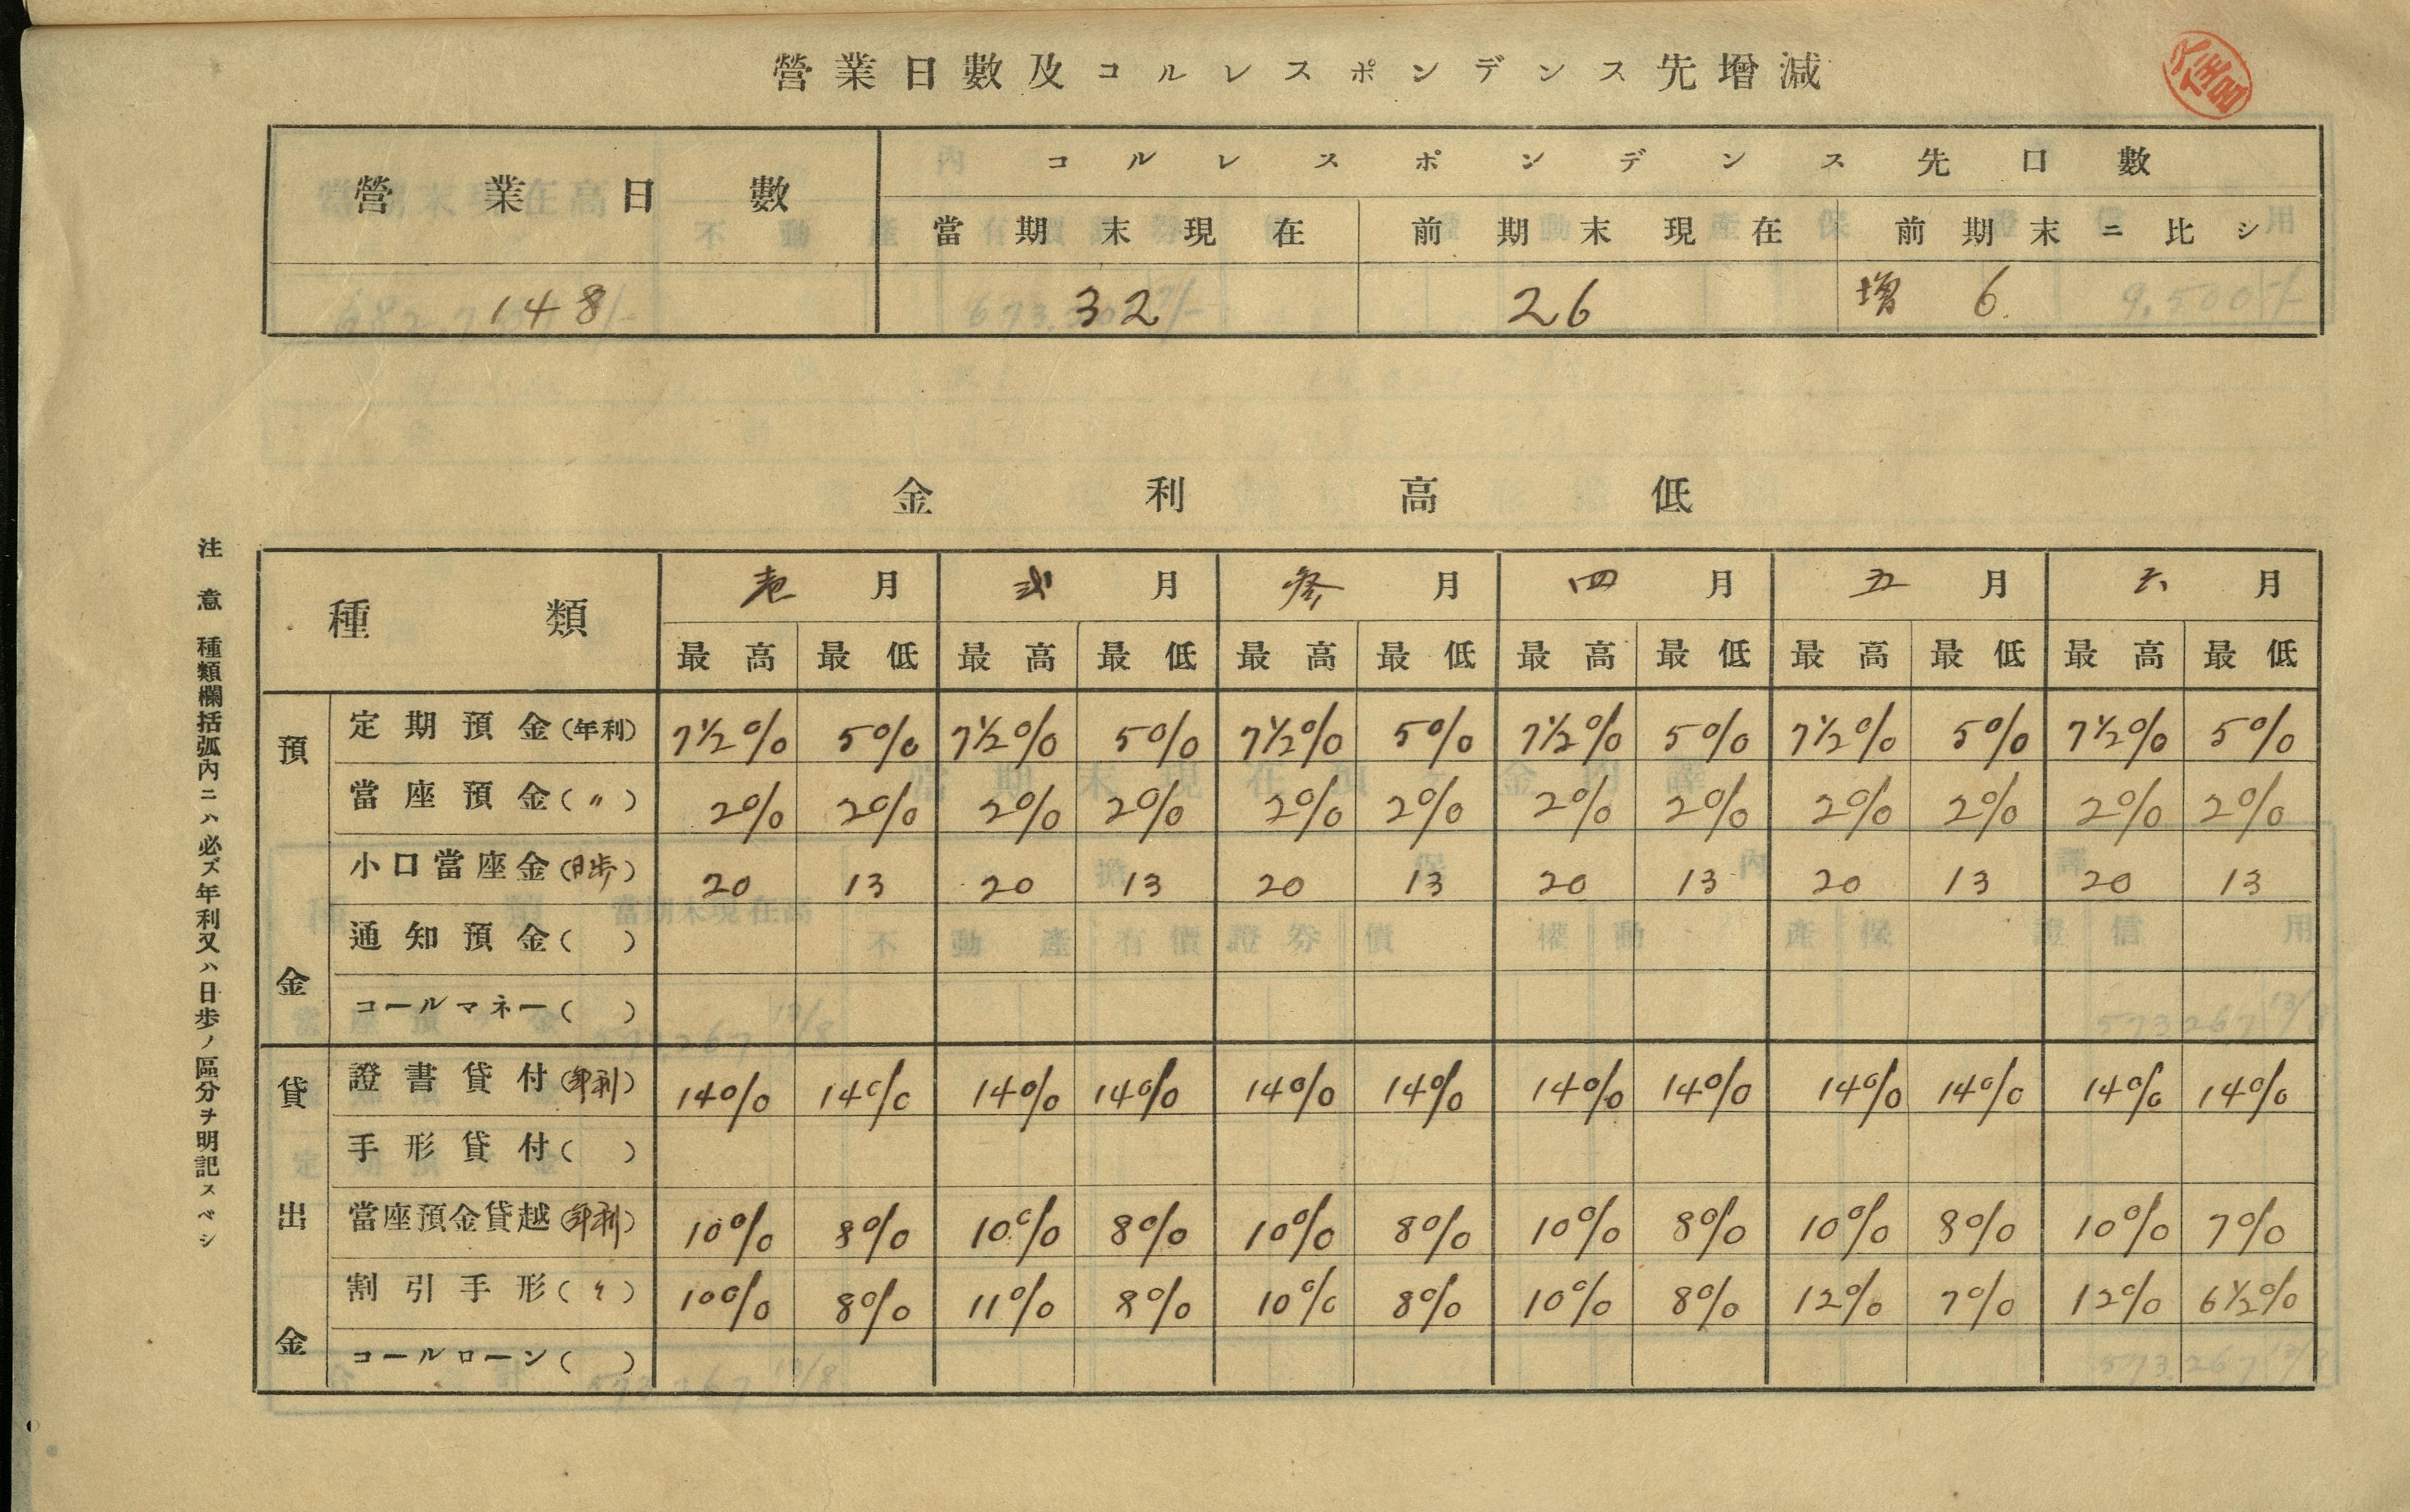 營業日數及コルレスポンデンス先增減
營業日數 コルレスポンデンス先口數
當期末現在 前期末現在 前期末ニ比シ
148 32 26 增 6
金利高低
種類 壱月 弐月 参月 四月 五月 六月
最高 最低 最高 最低 最高 最低 最高 最低 最高 最低 最高 最低
預金
定期預金(年利) 7½% 5% 7½% 5% 7½% 5% 7½% 5% 7½% 5% 7½% 5%
當座預金(〃) 2% 2% 2% 2% 2% 2% 2% 2% 2% 2% 2% 2%
小口當座金(日歩) 20 13 20 13 20 13 20 13 20 13 20 13
通知預金( )
コールマネー( )
貸出金
證書貸付(年利) 14% 14% 14% 14% 14% 14% 14% 14% 14% 14% 14% 14%
手形貸付( )
當座預金貸越(年利) 10% 8% 10% 8% 10% 8% 10% 8% 10% 8% 10% 7%
割引手形(〃) 10% 8% 11% 8% 10% 8% 10% 8% 12% 7% 12% 6½%
コールローン( )
注意 種類欄括弧內ニハ必ズ年利又ハ日步ノ區分ヲ明記スベシ